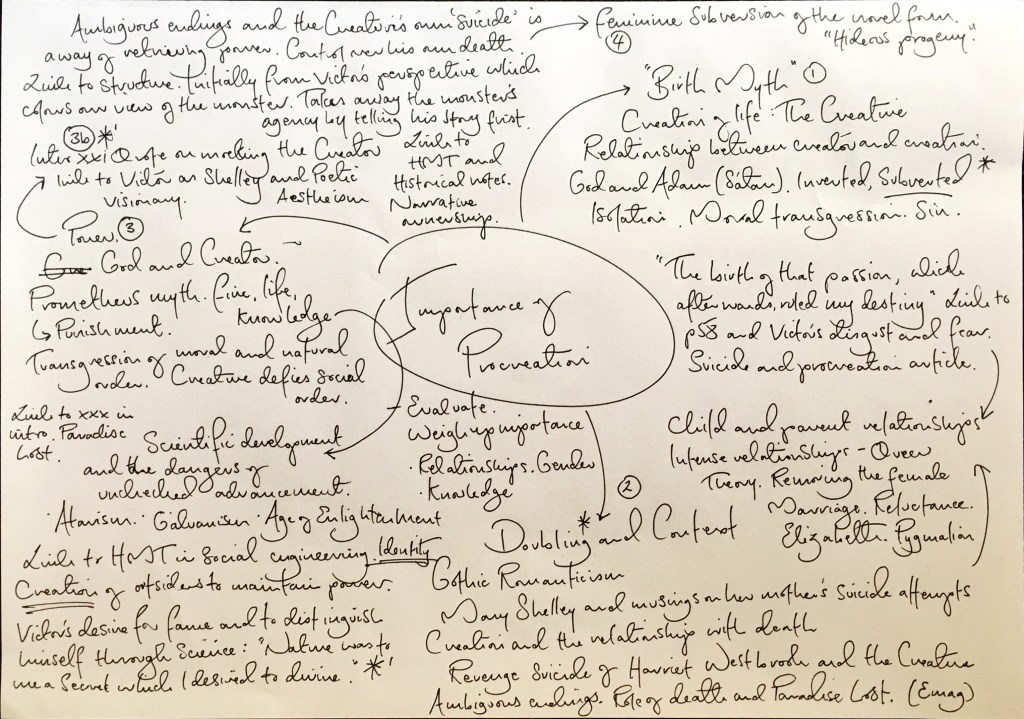 Ambiguous endings and the Creature's own 'Suicide' is
a way of retrieving power. Control over his own death.
Link to structure. Initially from Victor's perspective which
colours our view of the monster. Takes away the monster's
agency by telling his story first.
Link to
HMT and
Historical notes.
Narrative
ownership.
Feminine Subversion of the novel form.
④ "Hideous progeny."
"Birth Myth" ①
Creation of life: The Creature
Relationship between creator and creation.
God and Adam (Satan). Inverted, Subverted *
Isolation. Moral transgression. Sin.
"The birth of that passion, which
afterwards, ruled my destiny" Link to
p58 and Victor's disgust and fear.
Suicide and procreation article.
Child and parent relationships
Intense relationships - Queer
Theory. Removing the female
Marriage. Reluctance.
Elizabeth. Pygmalion
Importance of
Procreation
- Evaluate.
Weigh up importance
· Relationships. Gender
· Knowledge
②
Doubling * and Content
Gothic Romanticism
Mary Shelley and musings on her mother's suicide attempts
Creation and the relationship with death
Revenge Suicide of Harriet Westbrook and the Creature
Ambiguous endings. Role of death and Paradise Lost. (Emag)
(3b) *'
Intro xxi Quote on mocking the Creator
link to Victor as Shelley and Poetic
visionary. Aestheticism
Power. ③
God and Creator.
Prometheus myth. Fire, life,
Knowledge
↳ Punishment.
Transgression of moral and natural
order. Creature defies social
order.
Link to xxx in
intro. Paradise
Lost.
Scientific development
and the dangers of
unchecked advancement.
· Atavism · Galvanism · Age of Enlightenment
Link to HMT in Social engineering. Identity
Creation of outsiders to maintain power.
Victor's desire for fame and to distinguish
himself through Science: "Nature was to
me a Secret which I desired to divine." *'